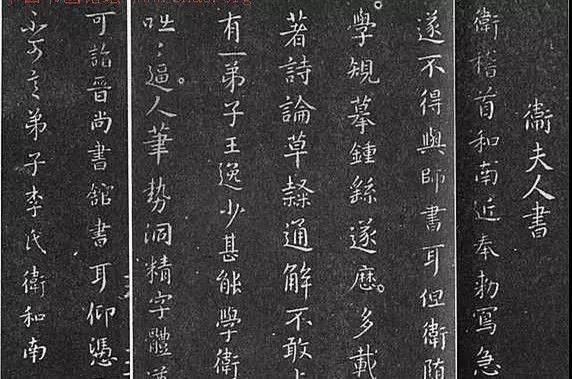 衛夫人書
衛稽首和南近奉勅寫急
遂不得與師書耳但衛随
學規摹鍾繇遂歷多載
著詩論草隸通解不敢
有一弟子王逸少甚能學衛
咄〻逼人筆勢洞精字體
可詣晉尚書館書耳仰憑
不可言弟子李氏衛和南